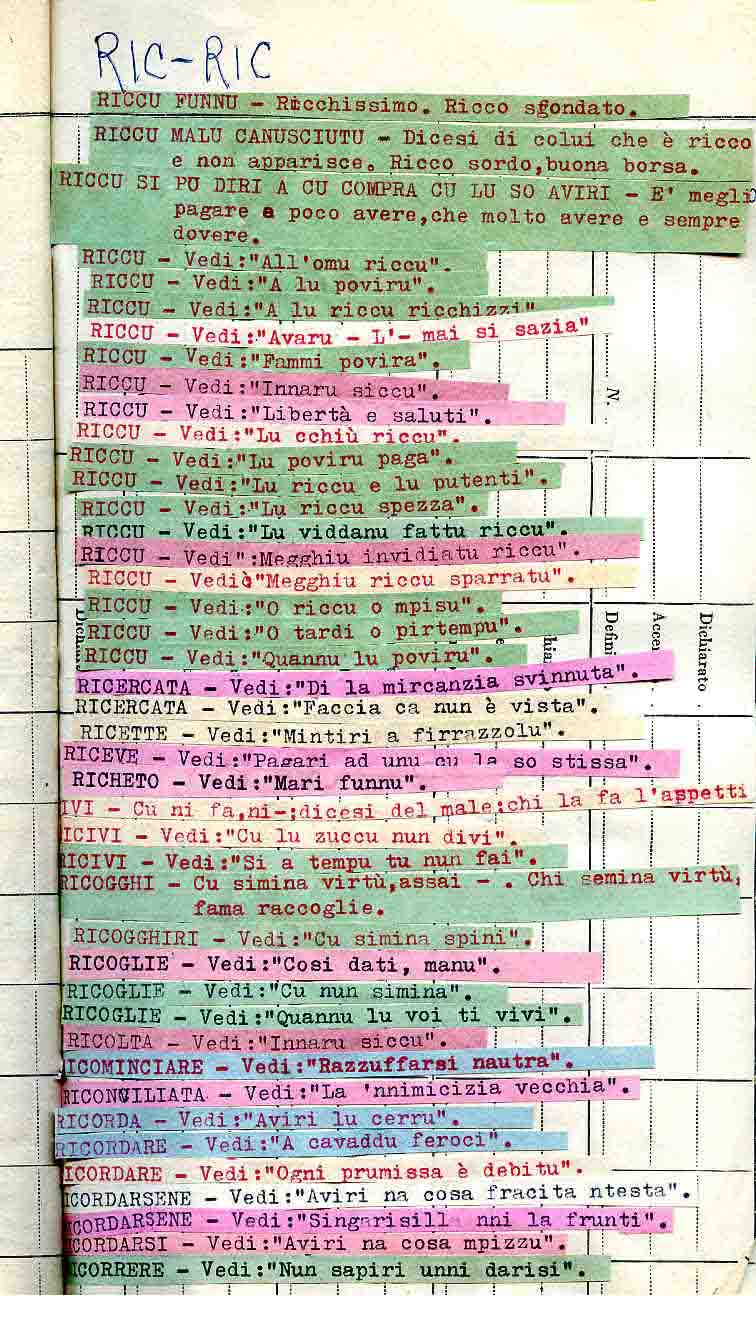 RIC-RIC
RICCU FUNNU - Ricchissimo. Ricco sfondato.
RICCU MALU CANUSCIUTU - Dicesi di colui che è ricco
e non apparisce. Ricco sordo,buona borsa.
RICCU SI PO DIRI A CU COMPRA CU LU SO AVIRI - E' megli
pagare e poco avere,che molto avere e sempre
dovere.
RICCU - Vedi:"All'omu riccu".
RICCU - Vedi:"A lu poviru".
RICCU - Vedi:"A lu riccu ricchizzi"
RICCU - Vedi:"Avaru - L'- mai si sazia"
RICCU - Vedi:"Fammi povira".
RICCU - Vedi:"Innaru siccu".
N.
RICCU - Vedi:"Libertà e saluti".
RICCU - Vedi:"Lu cchiù riccu".
RICCU - Vedi:"Lu poviru paga".
RICCU - Vedi:"Lu riccu e lu putenti".
RICCU - Vedi:"Lu riccu spezza".
RICCU - Vedi:"Lu viddanu fattu riccu".
RICCU - Vedi":Megghiu invidiatu riccu".
RICCU - Vedià"Megghiu riccu sparratu".
RICCU - Vedi:"O riccu o mpisu".
RICCU - Vedi:"O tardi o pirtempu".
RICCU - Vedi:"Quannu lu poviru".
Dichiarato
RICERCATA - Vedi:"Di la mircanzia svinnuta".
RICERCATA - Vedi:"Faccia ca nun è vista".
RICETTE - Vedi:"Mintiri a firrazzolu".
RICEVE - Vedi:"Pagari ad unu cu la so stissa".
RICHETO - Vedi:"Mari funnu".
IVI - Cu ni fa,ni-;dicesi del male:chi la fa l'aspetti
ICIVI - Vedi:"Cu lu zuccu nun divi".
RICIVI - Vedi:"Si a tempu tu nun fai".
RICOGGHI - Cu simina virtù,assai - . Chi semina virtù,
fama raccoglie.
RICOGGHIRI - Vedi:"Cu simina spini".
RICOGLIE - Vedi:"Cosi dati, manu".
RICOGLIE - Vedi:"Cu nun simina".
RICOGLIE - Vedi:"Quannu lu voi ti vivi".
RICOLTA - Vedi:"Innaru siccu".
ICOMINCIARE - Vedi:"Razzuffarsi nautra".
RICONVILIATA - Vedi:"La 'nnimicizia vecchia".
RICORDA - Vedi:"Aviri lu cerru".
RICORDARE - Vedi:"A cavaddu feroci".
ICORDARE - Vedi:"Ogni prumissa è debitu".
ICORDARSENE - Vedi:"Aviri na cosa fracita ntesta".
ICORDARSENE - Vedi:"Singarisill nni la frunti".
ICORDARSI - Vedi:"Aviri na cosa mpizzu".
ICORRERE - Vedi:"Nun sapiri unni darisi".